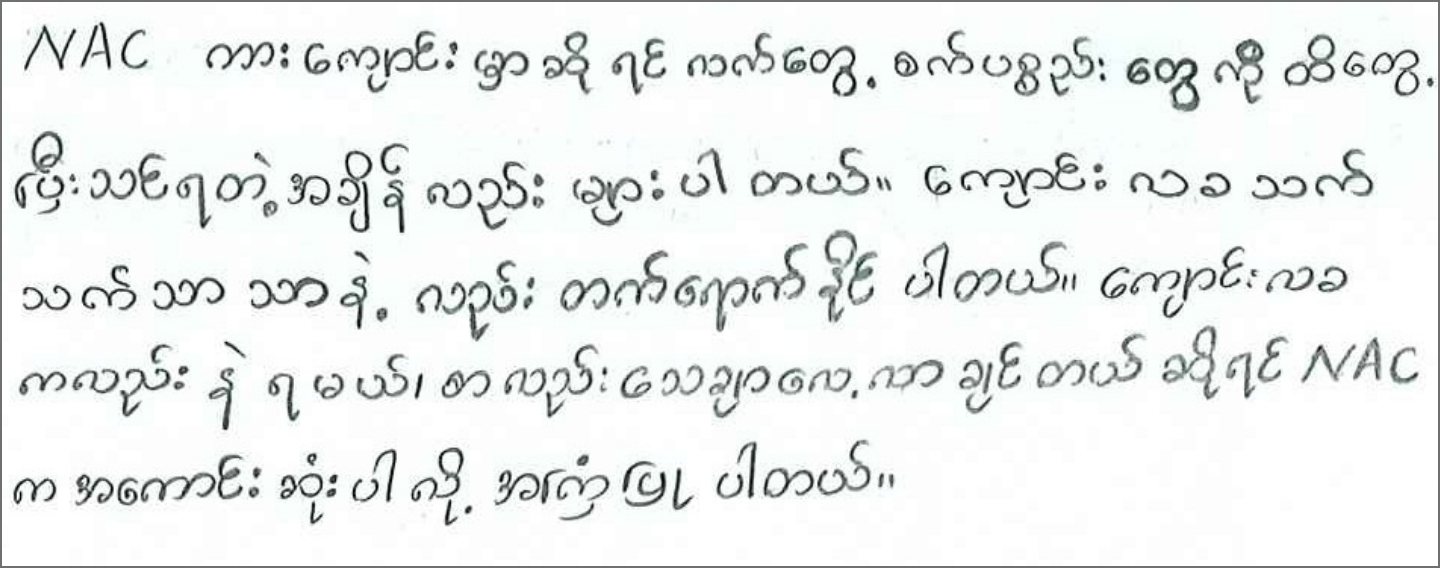 NAC ကားကျောင်းမှာ ဆိုရင် လက်တွေ့ စက်ပစ္စည်းတွေကို ထိတွေ့
ပြီးသင်ရတဲ့အချိန် လည်း များပါတယ်။ ကျောင်းလခ သက်
သက်သာသာနဲ့ လည်း တက်ရောက်နိုင် ပါတယ်။ ကျောင်းလခ
ကလည်း နဲရမယ်၊ စာလည်း သေချာလေ့လာချင်တယ် ဆိုရင် NAC
က အကောင်းဆုံးပါလို့ အကြံပြုပါတယ်။